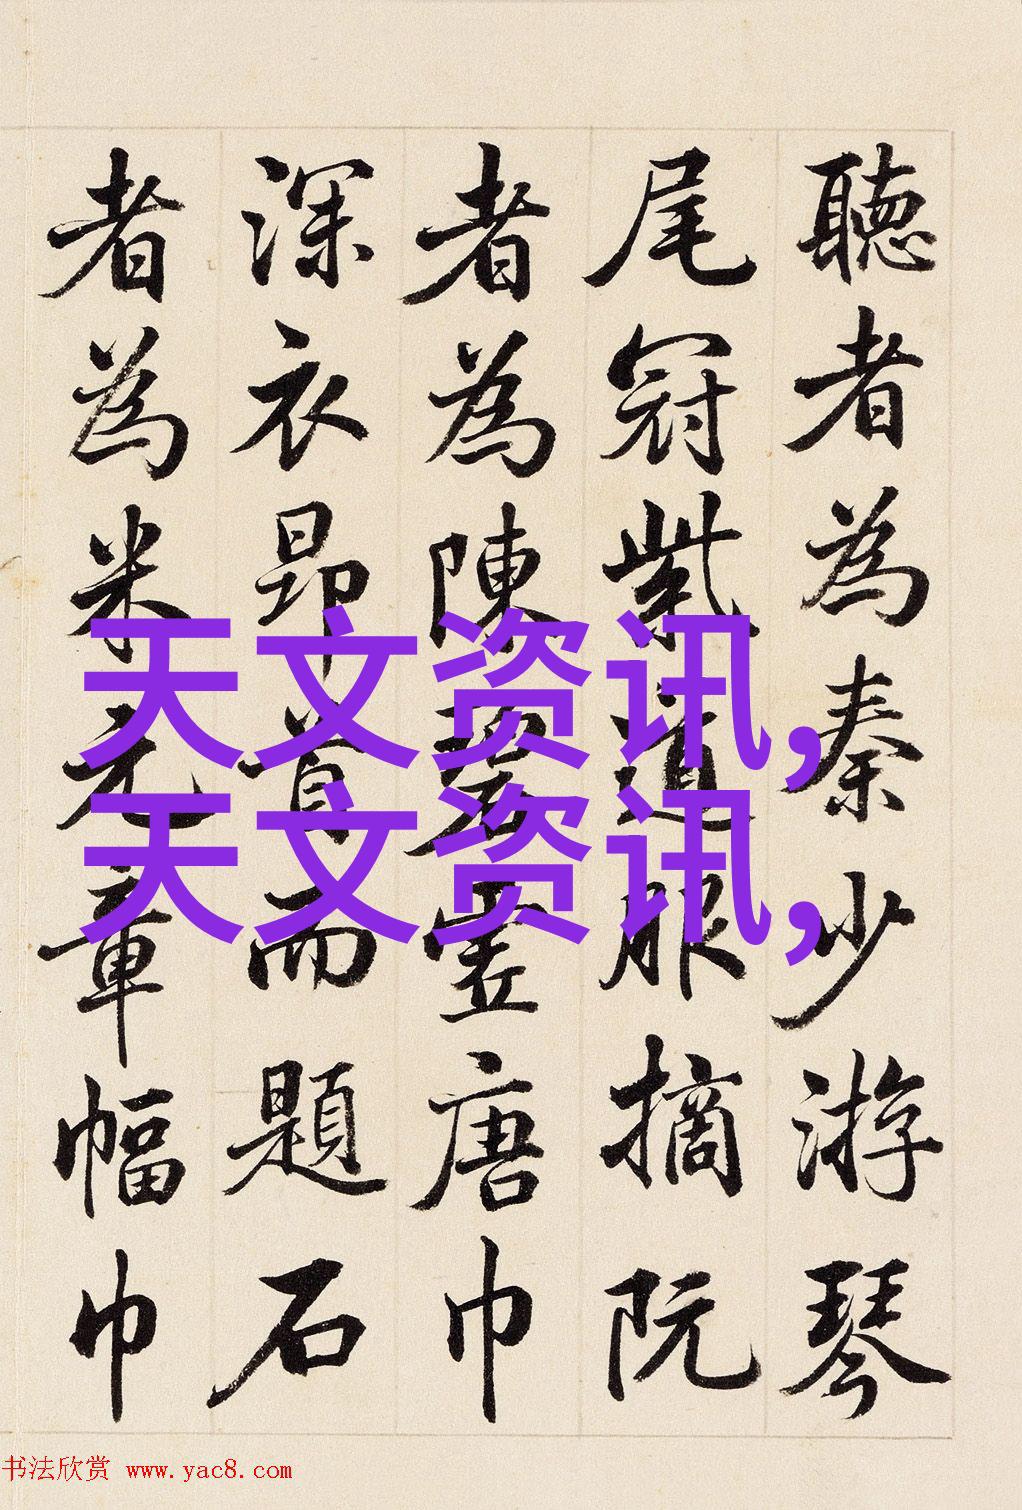 聽者為秦少游琴
尾冠紫道服摘阮
者為陳碧虛唐巾
深衣昂首而題石
者為米元章幅巾
天文资讯,
天文资讯,
书法欣赏 www.yac8.com